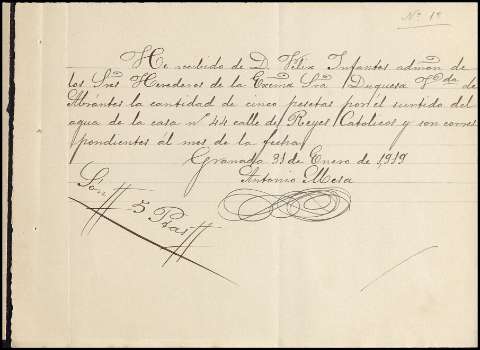 Nº 1º
He recibido de D. Félix Infantes admõn de
los Sres Herederos de la Excma Sra Duquesa Vda de
Abrantes la cantidad de cinco pesetas por el surtido del
agua de la casa nº 44 calle de Reyes Católicos y son corres
pondientes ál mes de la fecha
Granada 31 de Enero de 1,919
Antonio Mesa
Son # 5 Ptas #